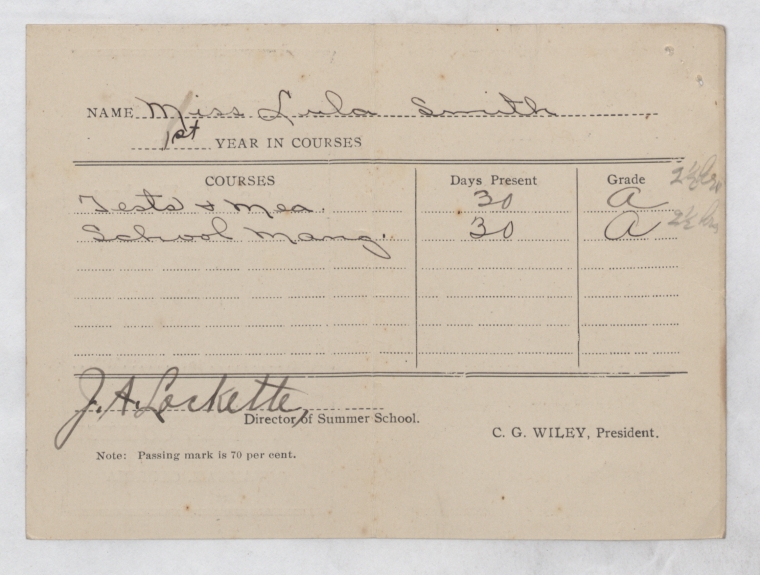 NAME Miss Lula Smith
1st YEAR IN COURSES
COURSES Days Present Grade
Tests & Mea. 30 A 2½
School Mang. 30 A 2½
J. A. Lockette,
Director of Summer School.
C. G. WILEY, President.
Note: Passing mark is 70 per cent.